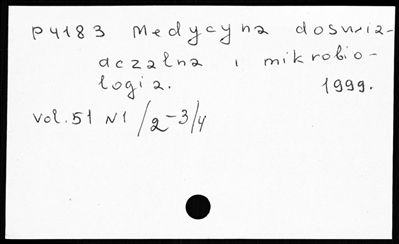 P4183 Medycyna doswia-
dczalna i mikrobio-
logia. 1999.
vol. 51 N1/2-3/4